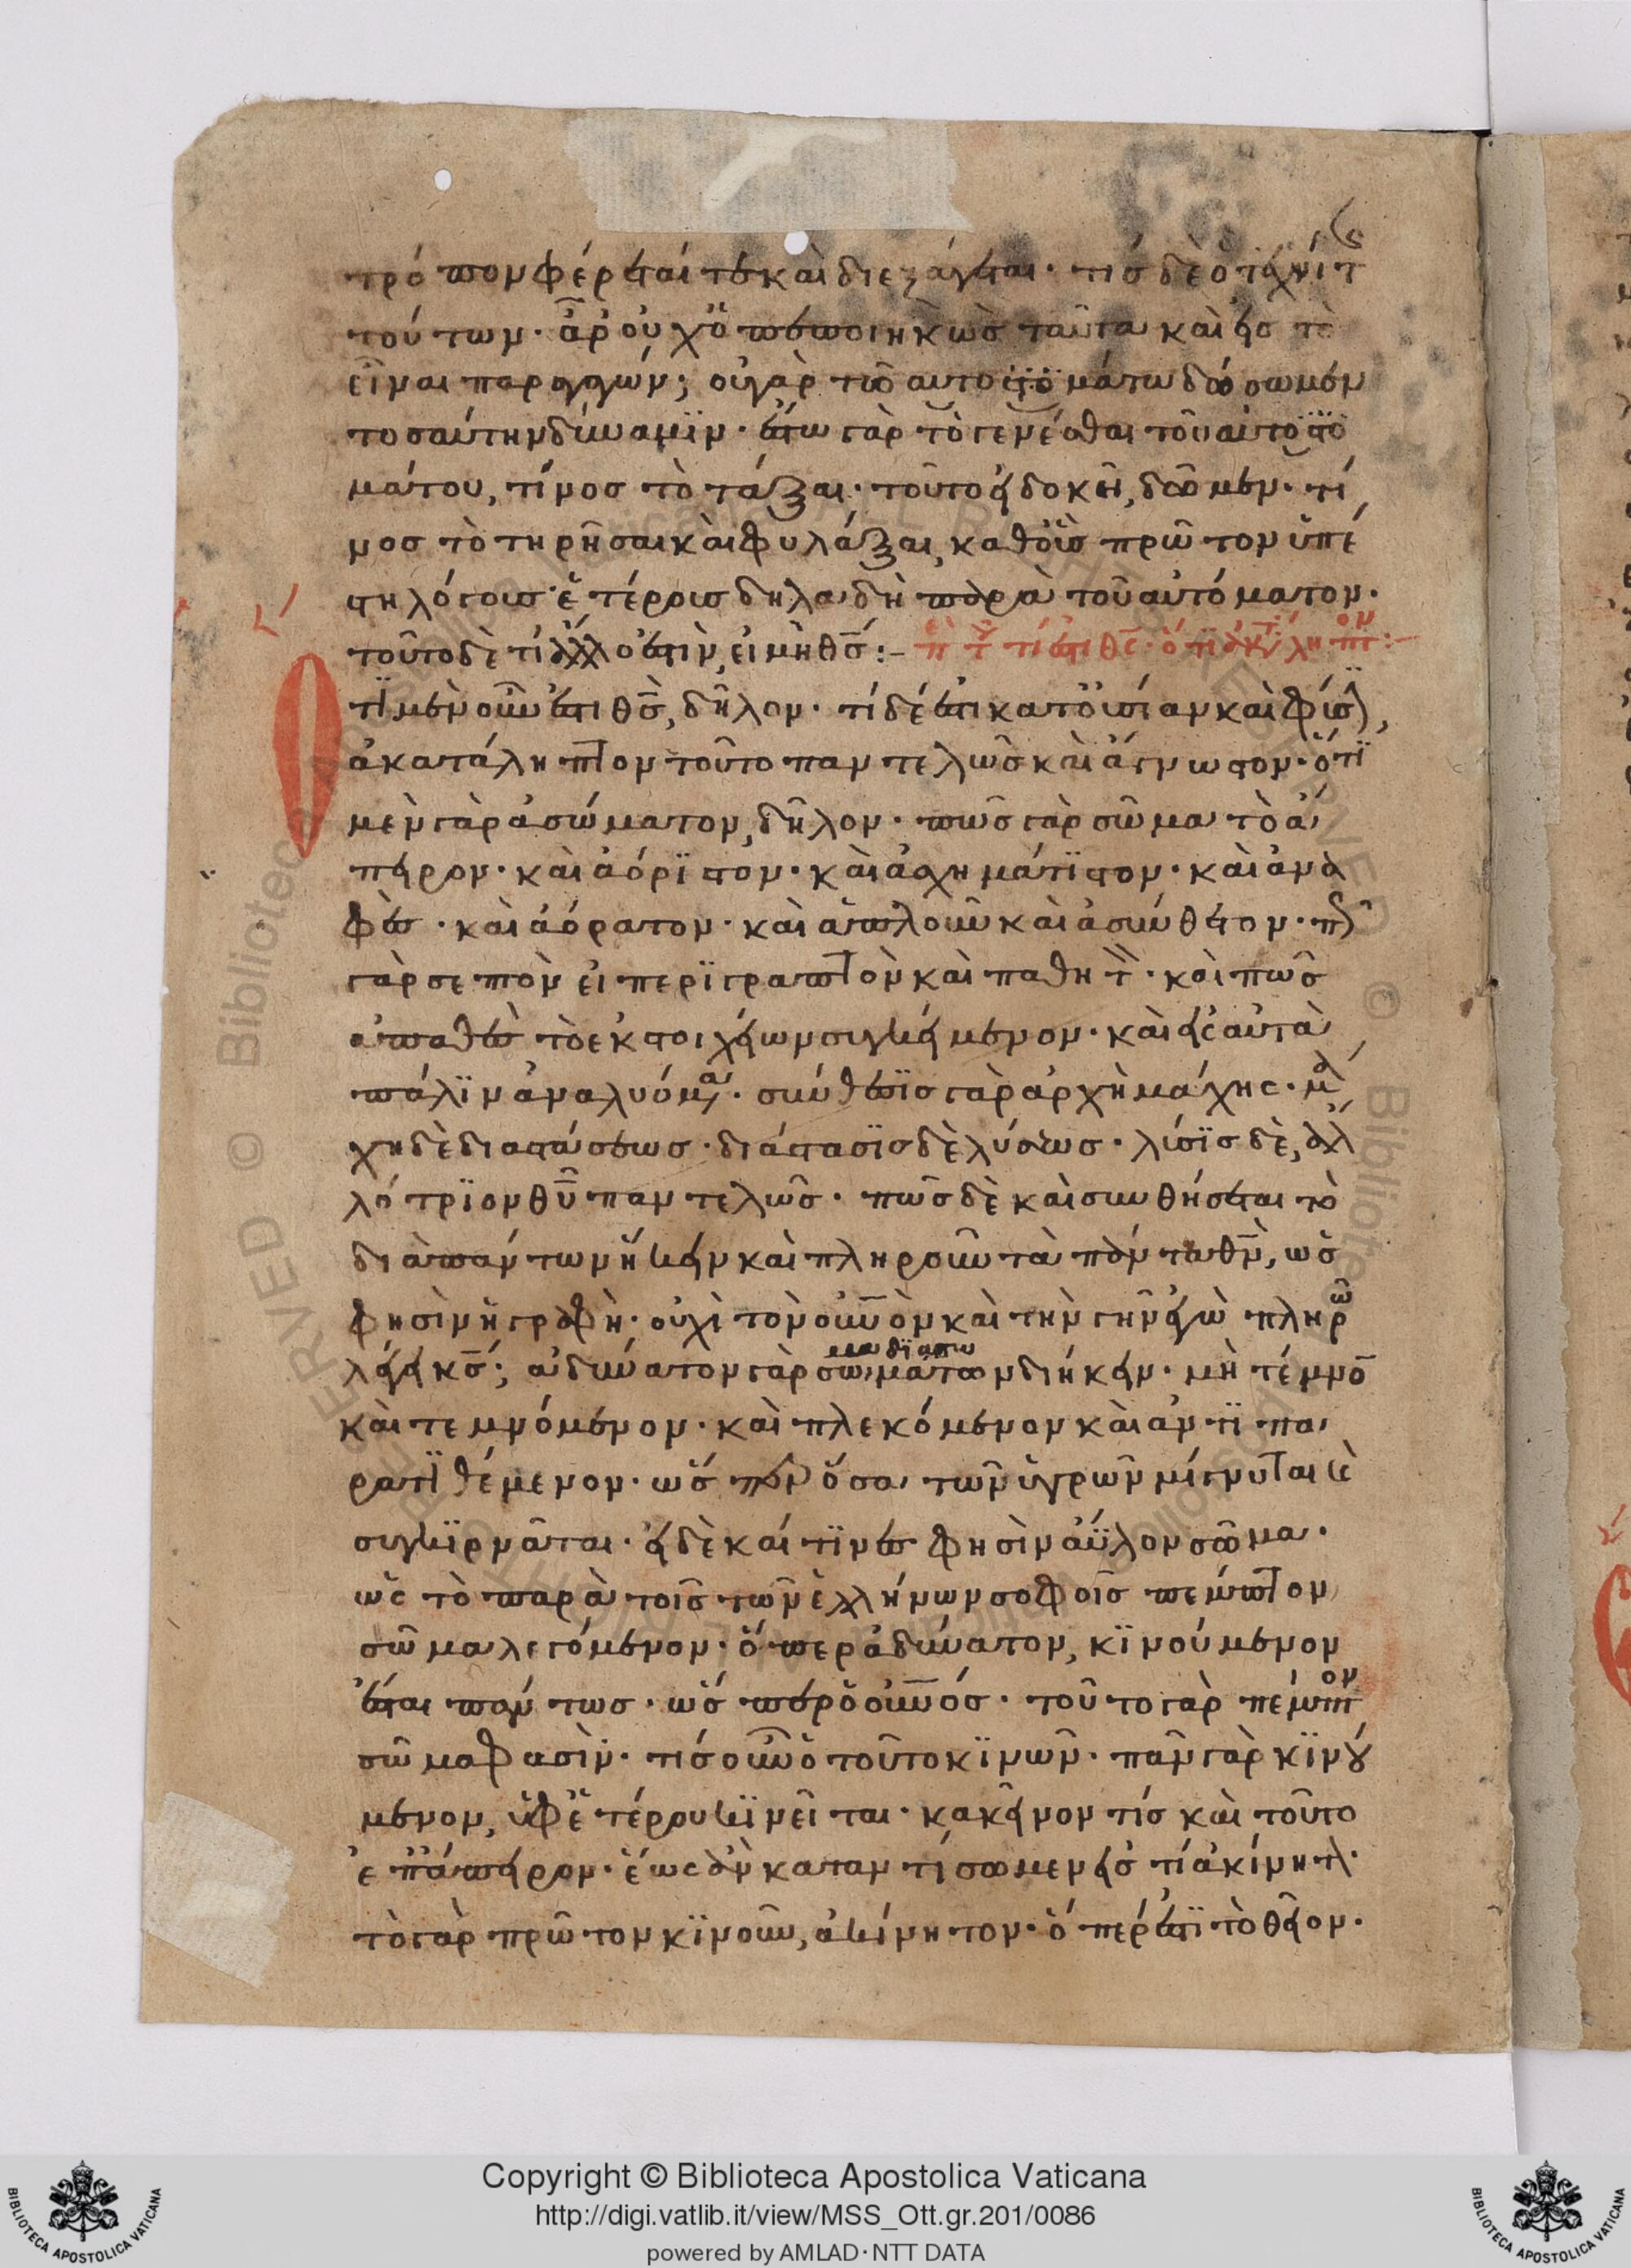 τρόπον φέρεταί τε καὶ διεξάγεται· τίς δὲ ὁ τεχνίτ
τούτων· ἆρ οὐχ ὁ πεποιηκὼς ταῦτα καὶ εἰς τὸ
εἶναι παραγαγών; οὐ γὰρ τῶ αὐτομάτω δώσωμεν
τοσαύτην δύναμϊν· ἔστω γὰρ τὸ γενέσθαι τοῦ αὐτο
μάτου, τίνος τὸ τάξαι· τοῦτο εἰ δοκεῖ, δῶμεν· τί
νος τὸ τηρῆσαι καὶ φυλάξαι, καθ οὓς πρῶτον ὑπέ
στη λόγοις· ἑτέρου δηλαδὴ παρὰ τοῦ αὐτόματον·
τοῦτο δὲ τί ἄλλο ἐστὶν, εἰ μὴ θς:–
τὶ μὲν οὖν ἔστι θς, δῆλον· τί δέ ἐστι κατ οὐσίαν καὶ φύσϊ,
ἀκατάληπτον τοῦτο παντελῶς καὶ ἄγνωστον· ὅτϊ
μὲν γὰρ ἀσώματον, δῆλον· πῶς γὰρ σῶμα τὸ ἄ
πειρον· καὶ ἀόρϊστον· καὶ ἀσχημάτϊστον· καὶ ἀνα
φὲς· καὶ ἀόρατον· καὶ ἁπλοῦν καὶ ἀσύνθετον· πῶς
γὰρ σεπτὸν εἰ περϊγραπτὸν καὶ παθητὸν· καὶ πῶς
ἀπαθὲς τὸ ἐκ στοιχείων συγκείμενον· καὶ εἰς αὐτὰ
πάλϊν ἀναλυόμενον· σύνθεσϊς γὰρ ἀρχὴ μάχης· μά
χη δὲ διαστάσεως· διάστασϊς δὲ λύσεως· λύσϊς δὲ, ἀλ
λότρϊον θυ παντελῶς· πῶς δὲ καὶ συνθήσεται τὸ
διὰ πάντων ἥκειν καὶ πληροῦν τὰ πάντα θν, ὥς
φησὶν ἡ γραφὴ· οὐχὶ τὸν ουνον καὶ τὴν γῆν ἐγὼ πληρῶ
λέγει κς; ἀδύνατον γὰρ σῶμα διὰ σωμάτων διήκειν· μὴ τέμνο
καὶ τεμνόμενον· καὶ πλεκόμενον καὶ ἀντϊπα
ρατϊθέμενον· ὥσπερ ὅσα τῶν ὑγρῶν μίγνυται καὶ
συγκϊρνᾶται· εἰ δὲ καί τϊνές φησὶν ἄϋλον σῶμα·
ὡς τὸ παρὰ τοῖς τῶν ἑλλήνων σοφοῖς πέμπτον
σῶμα λεγόμενον· ὅπερ ἀδύνατον, κϊνούμενον
ἔσται πάντως· ὥσπερ ὁ ουνος· τοῦτο γὰρ πέμπτον
σῶμα φασὶν· τίς οὖν ὁ τοῦτο κϊνῶν· πᾶν γὰρ κϊνού
μενον, ὑφ ἑτέρου κϊνεῖται· κακεῖνον τίς καὶ τοῦτο
ἐπ ἄπειρον· ἕως ἂν καταντήσωμεν εἴς τι ἀκίνητον·
τὸ γὰρ πρῶτον κϊνοῦν, ἀκίνητον· ὅπέρ ἐστϊ τὸ θεῖον·
Copyright © Biblioteca Apostolica Vaticana
http://digi.vatlib.it/view/MSS_Ott.gr.201/0086
powered by AMLAD·NTT DATA
BIBLIOTECA APOSTOLICA VATICANA
BIBLIOTECA APOSTOLICA VATICANA